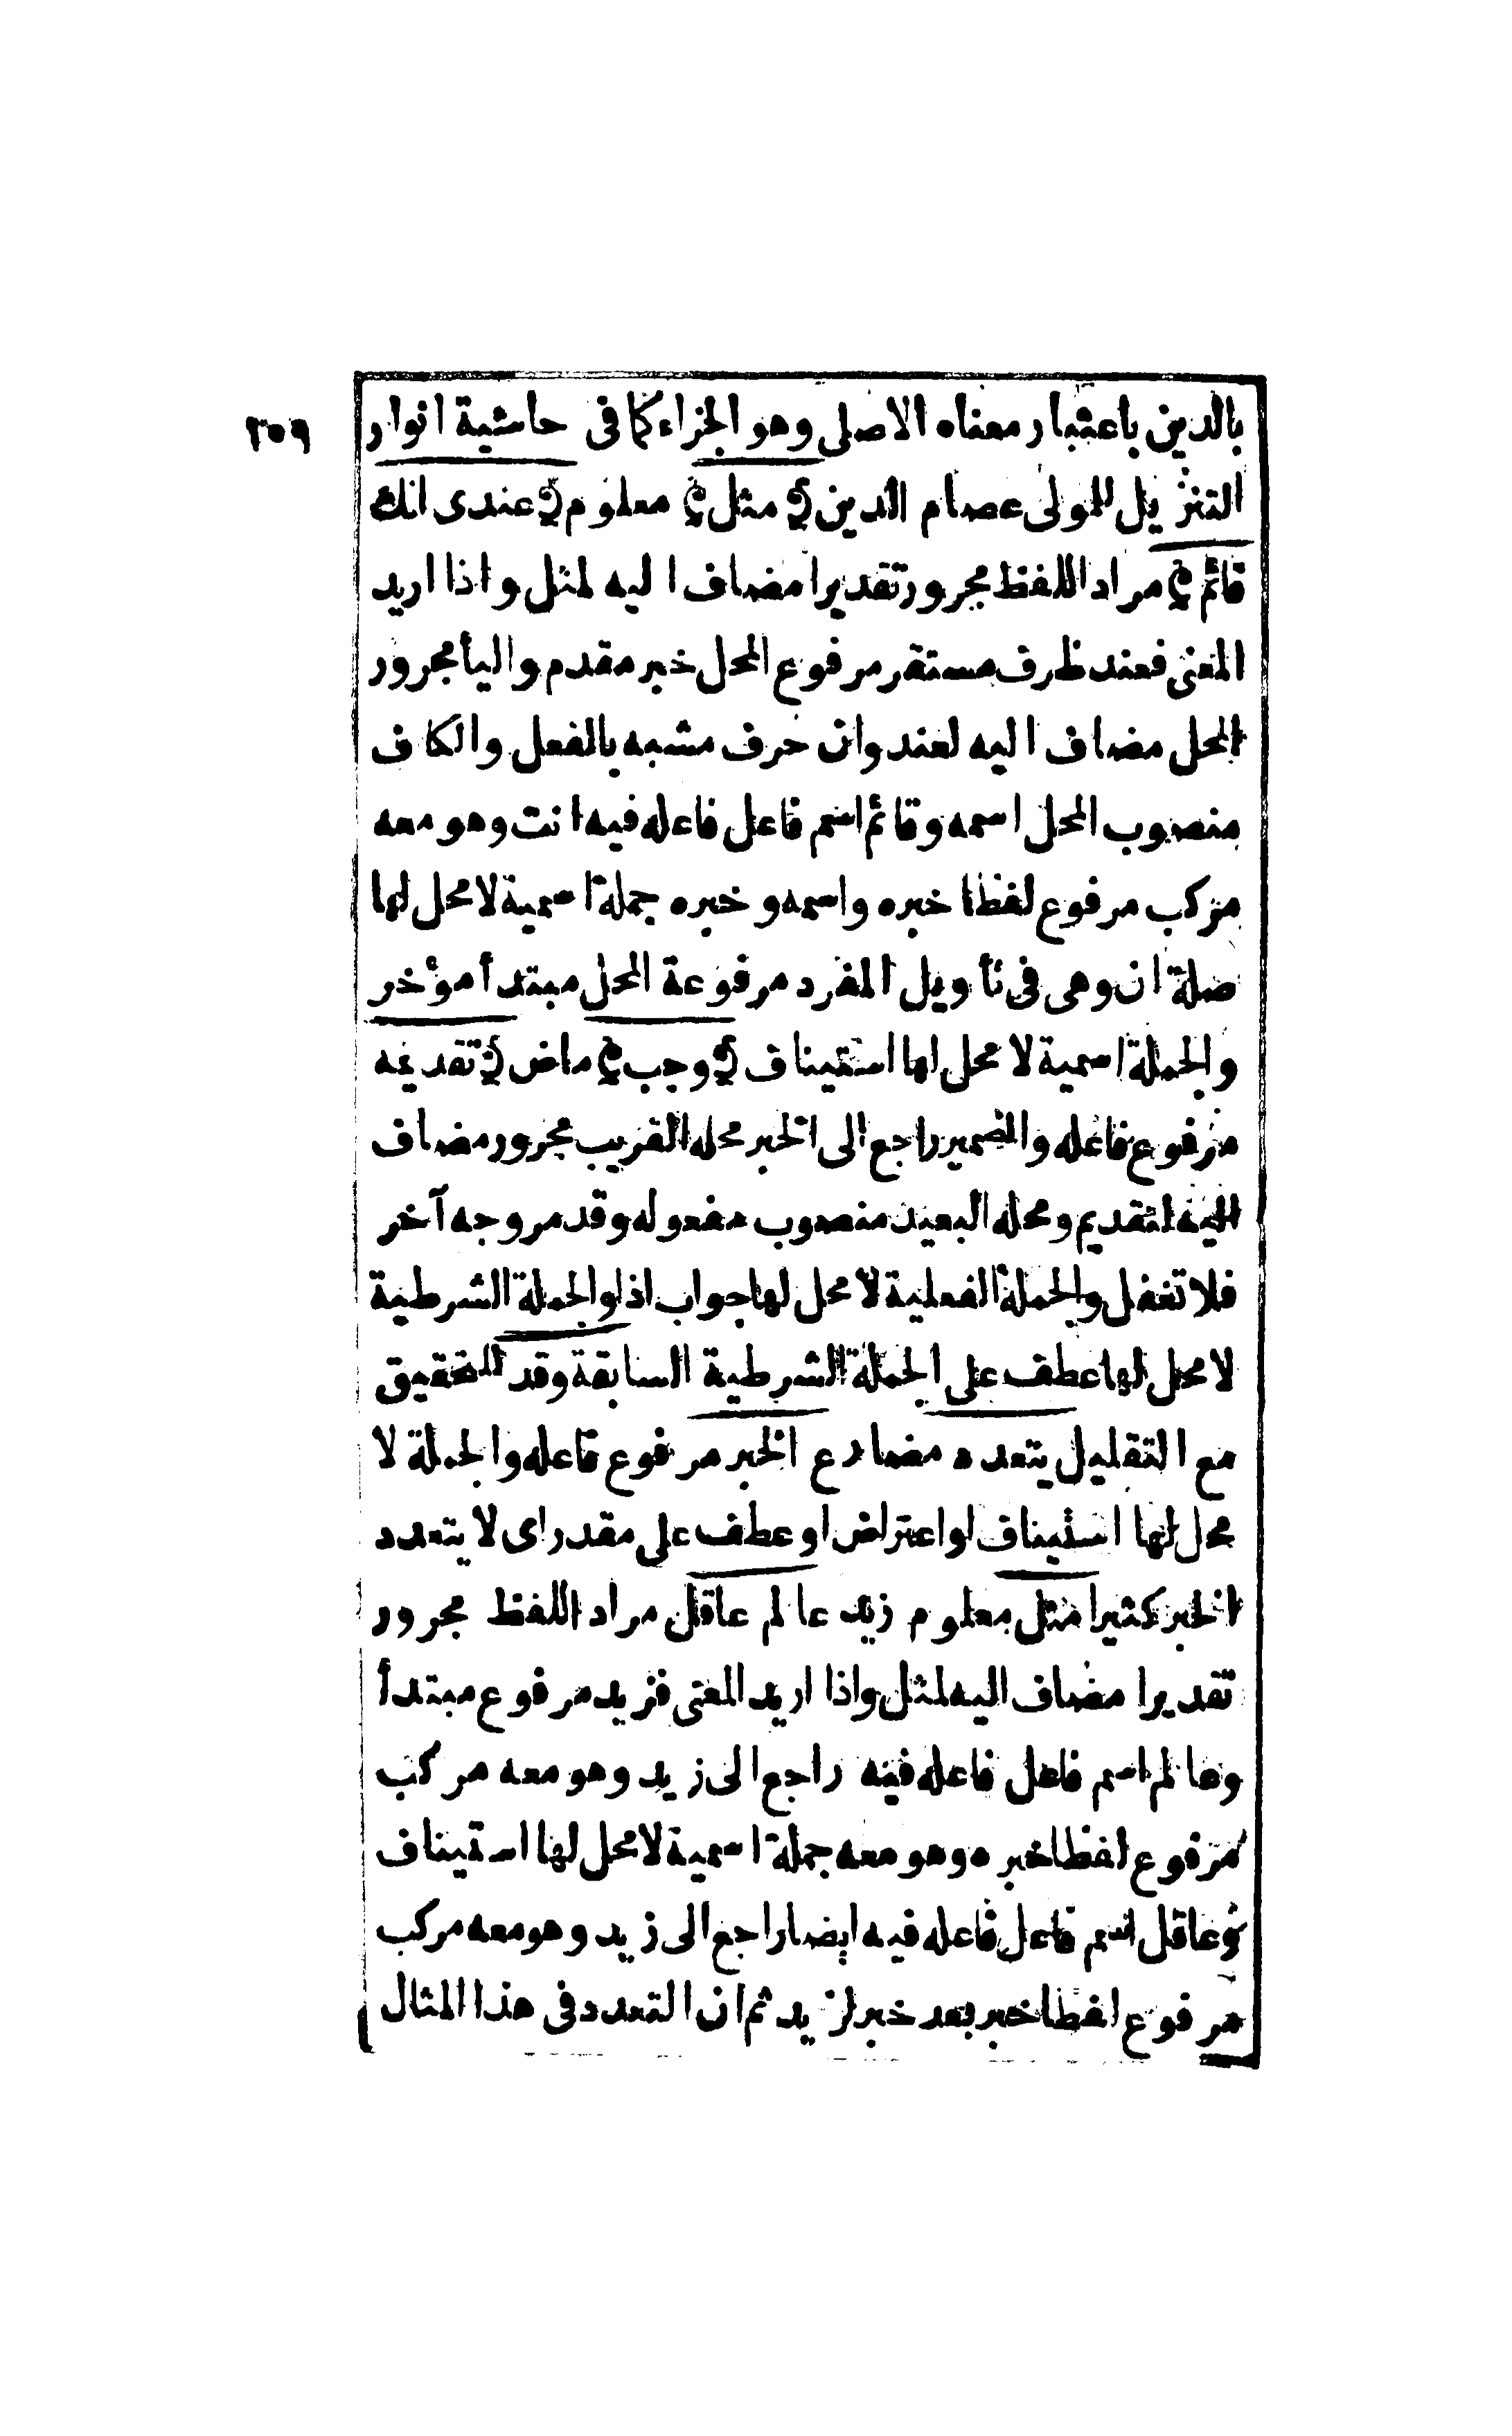 ٢٥٩
بالدين باعتبار معناه الاصلى وهو الجزاء كما فى حاشية انوار
التنزيل للمولى عصام الدين ﴿ مثل ﴾ معلوم ﴿ عندى انك
قائم ﴾ مراد اللفظ مجرور تقديرا مضاف اليه لمثل واذا اريد
المعنى فعند ظرف مستقر مرفوع المحل خبر مقدم واليأ مجرور
المحل مضاف اليه لعند وان حرف مشبه بالفعل والكاف
منصوب المحل اسمه وقائم اسم فاعل فاعله فيه انت وهو معه
مركب مرفوع لفظا خبره واسمه وخبره جملة اسمية لا محل لها
صلة ان وهى فى تأويل المفرد مرفوعة المحل مبتدأ مؤخر
والجملة اسمية لا محل لها استيناف ﴿ وجب ﴾ ماض ﴿ تقديمه
مرفوع فاعله والضمير راجع الى الخبر محله القريب مجرور مضاف
اليه لتقديم ومحله البعيد منصوب مفعوله وقد مر وجه آخر
فلا تغفل والجملة الفعلية لا محل لها جواب اذا والجملة الشرطية
لا محل لها عطف على الجملة الشرطية السابقة وقد للتحقيق
مع التقليل يتعدد مضارع الخبر مرفوع فاعله والجملة لا
محل لها استيناف او اعتراض او عطف على مقدر اى لا يتعدد
الخبر كثيرا مثل معلوم زيد عالم عاقل مراد اللفظ مجرور
تقديرا مضاف اليه لمثل واذا اريد المعنى فزيد مرفوع مبتدأ
وعالم اسم فاعل فاعله فيه راجع الى زيد وهو معه مركب
مرفوع لفظا خبره وهو معه جملة اسمية لا محل لها استيناف
وعاقل اسم فاعل فاعله فيه ايضا راجع الى زيد وهو معه مركب
مرفوع لفظا خبر بعد خبر لزيد ثم ان التعدد فى هذا المثال